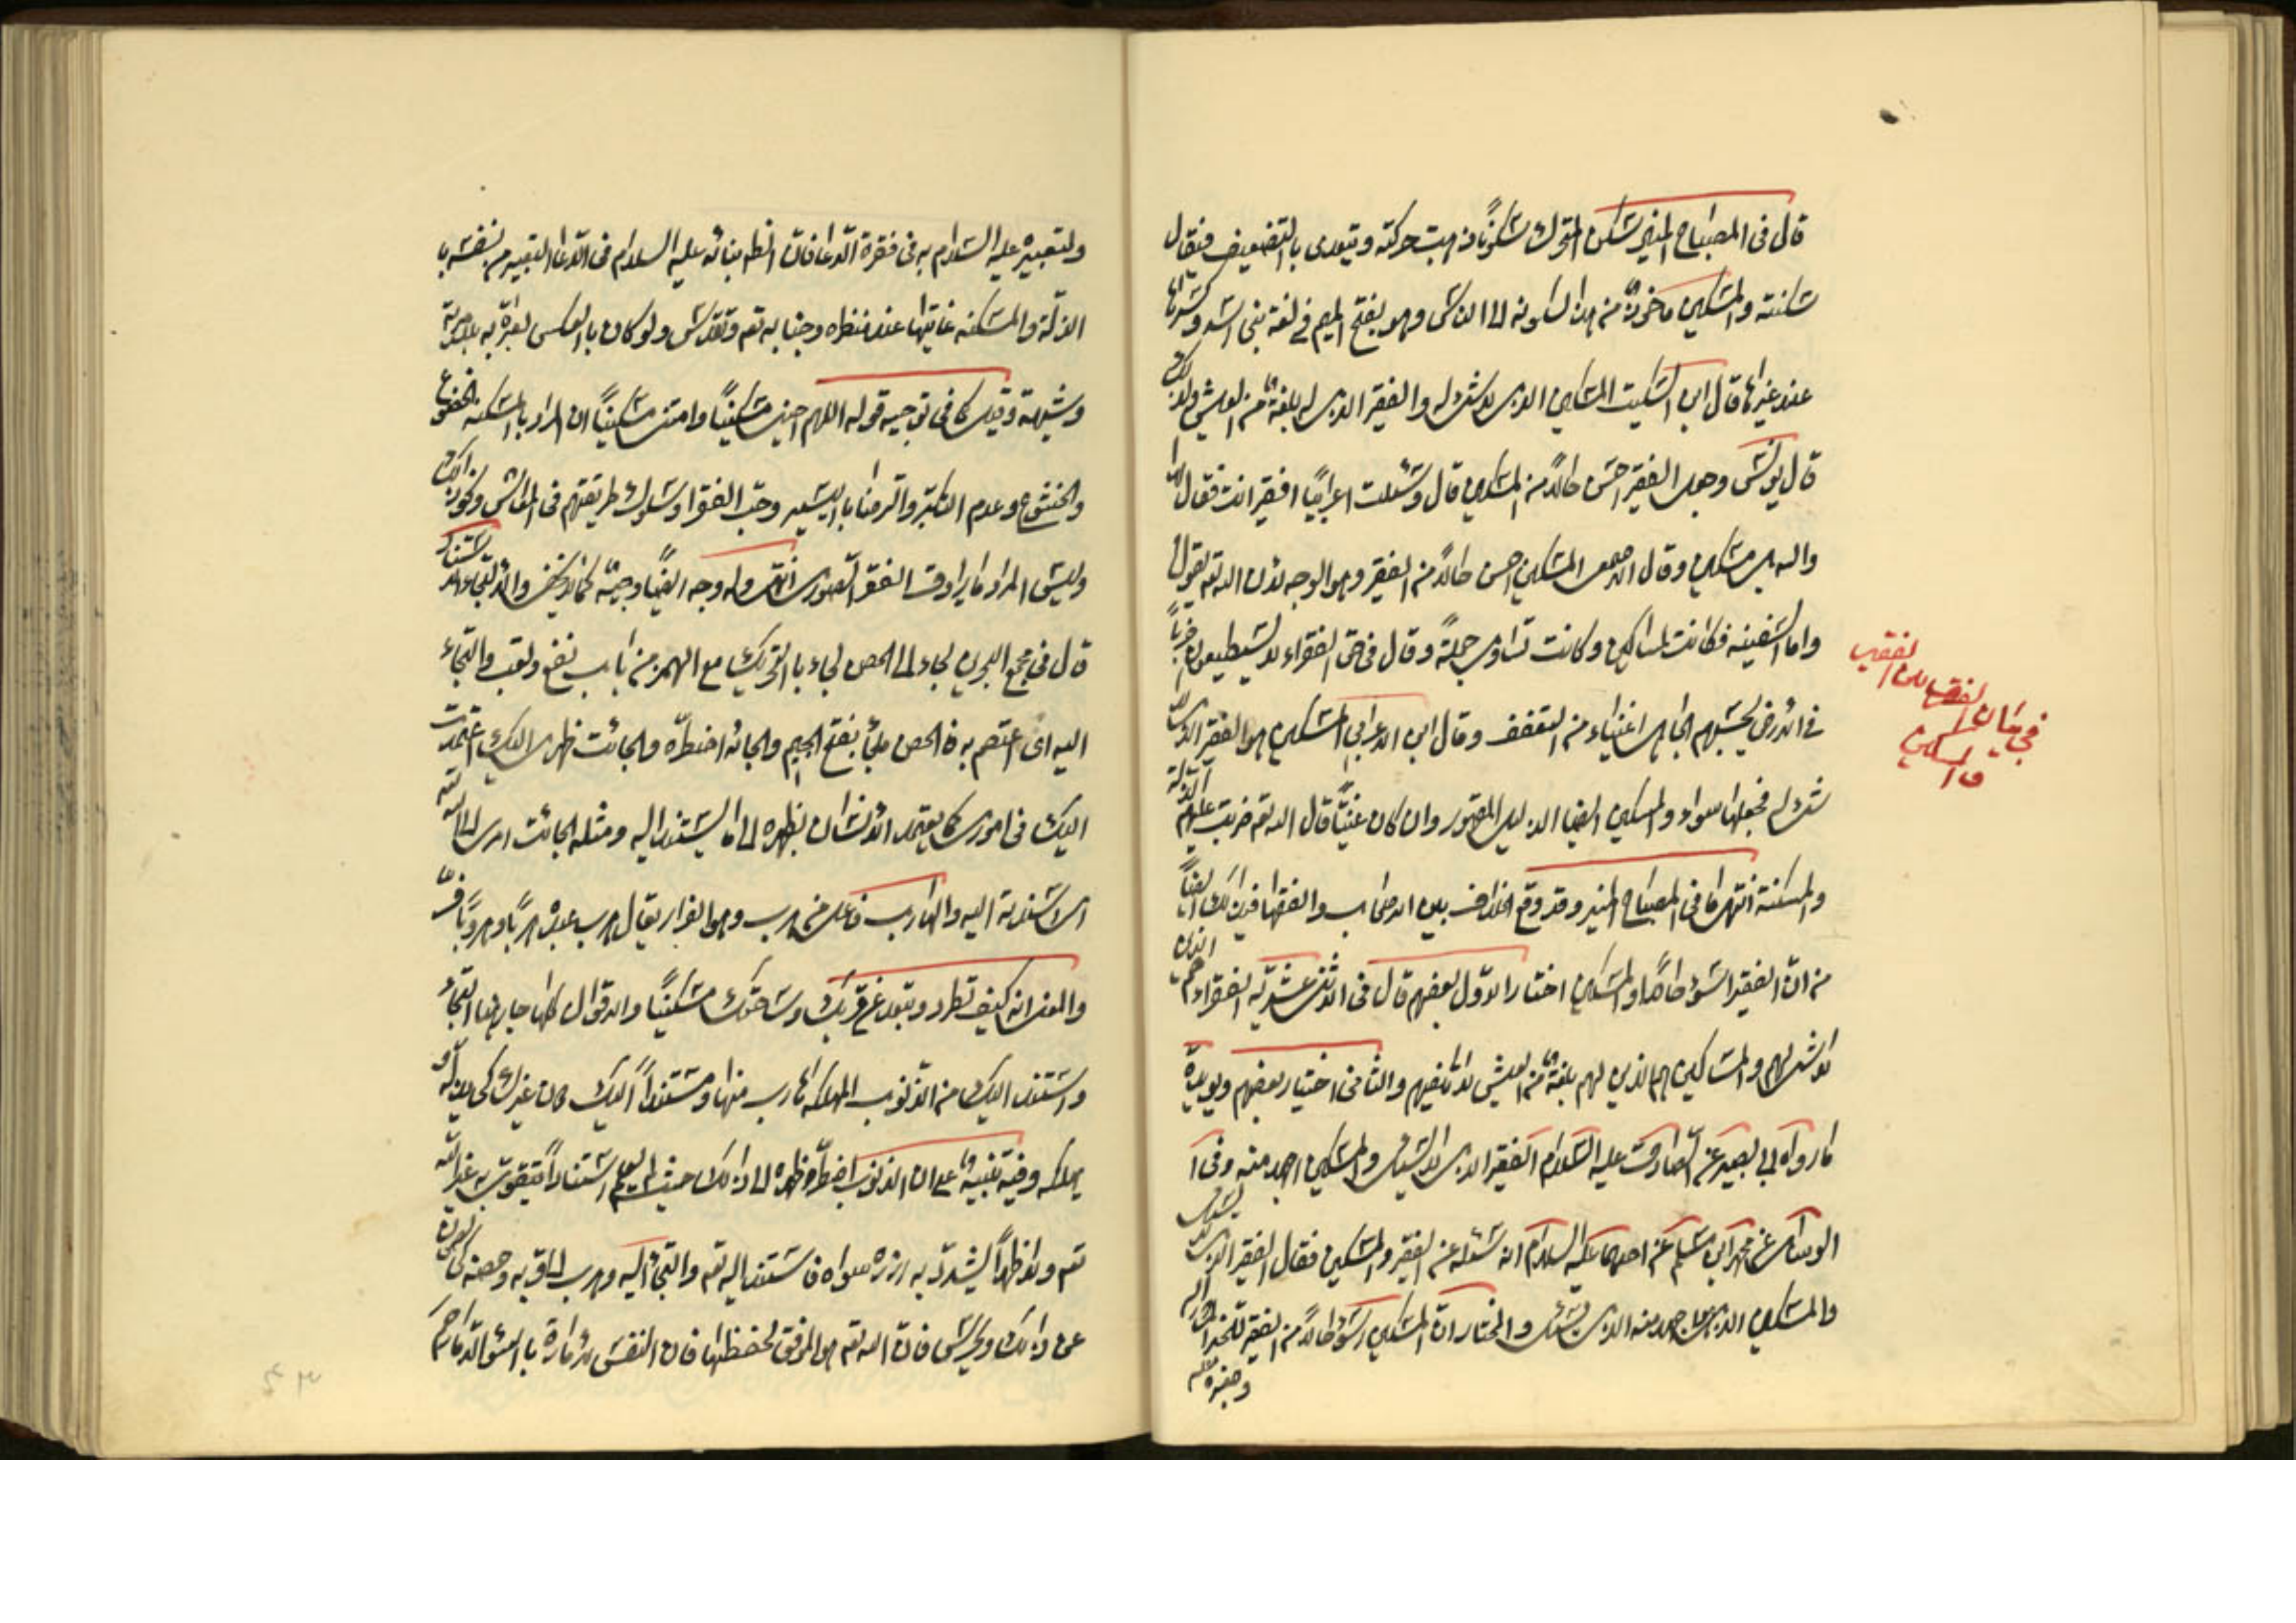 قال فى المصباح المنير سكن المتحرك سكونًا ذهبت حركته ويتعدى بالتضعيف فيقال
سكنته والمسكين ماخوذ من هذا لسكونه الى الناس وهو بفتح الميم فى لغة بنى اسد وبكسرها
عند غيرهم قال ابن السكيت المسكين الذى لا شئ له والفقير الذى له بلغة من العيش وكذلك
قال يونس وجعل الفقير احسن حالًا من المسكين قال وسئلت اعرابيًا افقير انت فقال لا
والله بل مسكين وقال الاصمعى المسكين احسن حالًا من الفقير وهو الوجه لان الله تعه يقول
واما السفينه فكانت لمساكين وكانت تساوى جملةً وقال فى حق الفقراء لا يستطيعون ضربًا
فى الارض يحسبهم الجاهل اغنياء من التعفف وقال ابن الاعرابى المسكين هو الفقير الذى لا
شئ له فجعلهما سواء والمسكين ايضا الذليل المقهور وان كان غنيًّا قال الله تعه ضربت عليهم الذلة
والمسكنة انتهى ما فى المصباح المنير وقد وقع الخلاف بين الاصحاب والفقهاء فى ذلك ايضًا
من انّ الفقير اسوء حالًا او المسكين اختار الاوّل بعضهم قال فى الاثنى عشريّه الفقراء هم الذين
لا شئ لهم والمساكين هم الذين لهم بلغة من العيش لا تكفيهم والثانى اختيار بعضهم ويؤيده
ما رواه ابى بصير عن الصادق عليه السلام الفقير الذى لا يسئل والمسكين اجهد منه وفى
الوسائل عن محمد ابن مسلم عن احدهما عليه السلام انه سئله عن الفقير والمسكين فقال الفقير الذى لا يسئل
والمسكين الذى هو اجهد منه الذى يسئل والمختار انّ المسكين اسوء حالًا من الفقير للخبر المشار اليه
وغيره
فى بيان الفقير
والمسكين
ولتعبيره عليه السلام به فى فقرة الدّعا فانّ انظر بنائه عليه السلام فى الدّعا التعبير من نفسه با
الذلّة والمسكنه غايتها عند منظره وجنابه تعه وتقدّس ولو كان بالعكس لعبّر به
وشبهه وقيل كما فى توجيه قوله اللهم احينى مسكينًا وامتنى مسكينًا ان المراد بالمسكنه الخضوع
والخشوع وعدم التكبّر والرضا باليسير وحبّ الفقرا وسلوك طريقتهم فى المعاش ونحو ذالك
وليس المراد ما يرادف الفقر الصورى انتهى وله وجه ايضًا وجيه كما لا يخفى والالتجاء الاستناد
قال فى مجمع البحرين لجاء الى الحصن لجاء بالتحريك مع الهمز من باب نفع ولعب والتجاء
اليه اى اعتصم به فالحصن ملجأ بفتح الجيم والجائه اضطرّه والجائت ظهرى اليك اعتمدت
اليك فى امورى كما يعتمد الانسان بظهره الى ما يستند اليه ومثله الجائت امرى الى الله
اى اسندته اليه والهارب فاعل من هرب وهو الفرار يقال هرب عبده هربًا وهروبًا فرّ
والمعنى انه كيف تطرد وتبعد عن قربك وساحتك مسكينًا والاقوال كلها جارية هنا التجاء
واستند اليك من الذنوب المهلكه هارب منها ومستندًا اليك كان غيرك
يملكه وفيه تنبيه على ان الذنوب اضطر ظهره الى ذالك حيث لم يعلم استنادًا يتقوى به غير الله
تعه ولا ظهرًا يشدّ به ازره سواه فاستند اليه تعه والتجأ اليه وهرب الى قربه وحصنه
عن ذالك ويحرس فانّ الله تعه هو الموفق لحفظها فان النفس لامّارة بالسوء الّا ما رحم